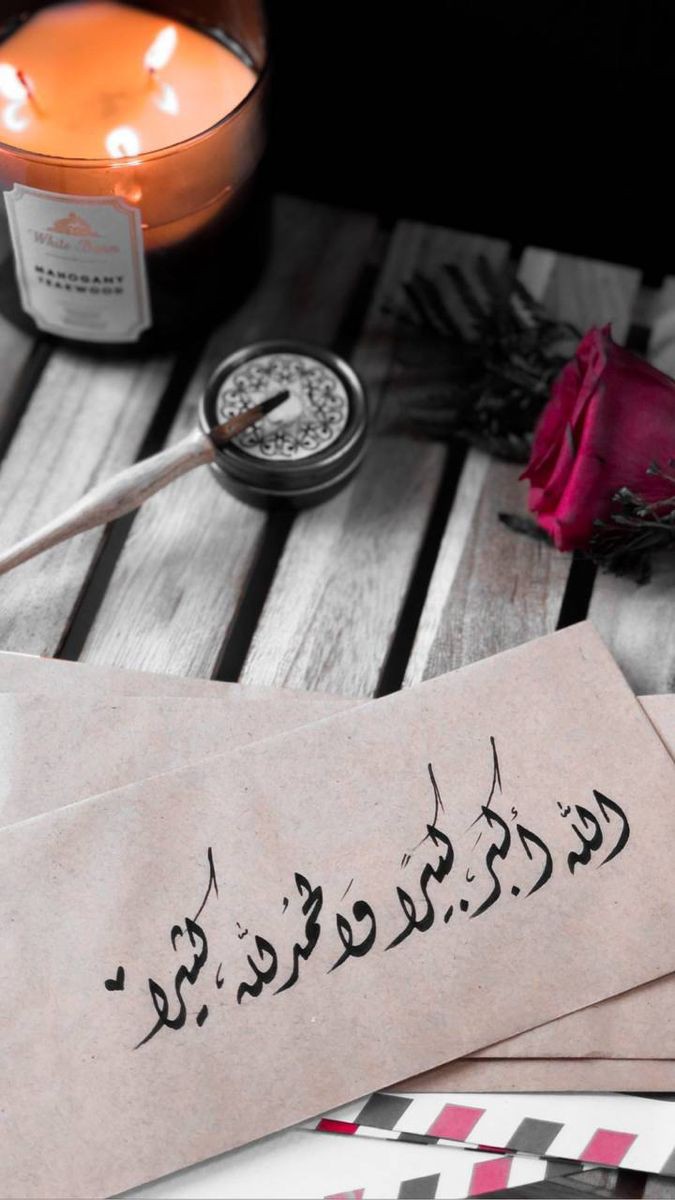 White Barn
MAHOGANY
TEAKWOOD
الله أكبر كبيرًا وَالحمُد لله كثيرًا